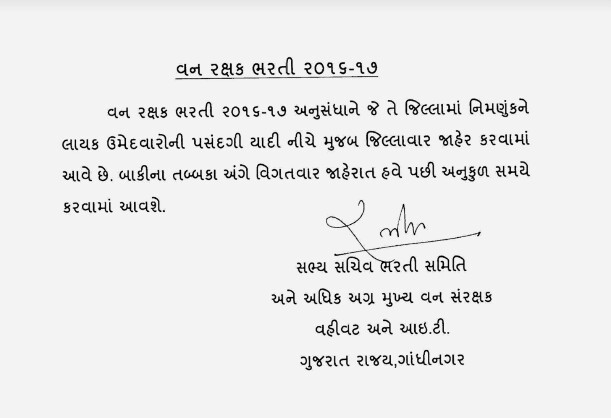 વન રક્ષક ભરતી ૨૦૧૬-૧૭
વન રક્ષક ભરતી ૨૦૧૬-૧૭ અનુસંધાને જે તે જિલ્લામાં નિમણુંકને
લાયક ઉમેદવારોની પસંદગી યાદી નીચે મુજબ જિલ્લાવાર જાહેર કરવામાં
આવે છે. બાકીના તબ્બકા અંગે વિગતવાર જાહેરાત હવે પછી અનુકુળ સમયે
કરવામાં આવશે.
સભ્ય સચિવ ભરતી સમિતિ
અને અધિક અગ્ર મુખ્ય વન સંરક્ષક
વહીવટ અને આઇ.ટી.
ગુજરાત રાજય,ગાંધીનગર